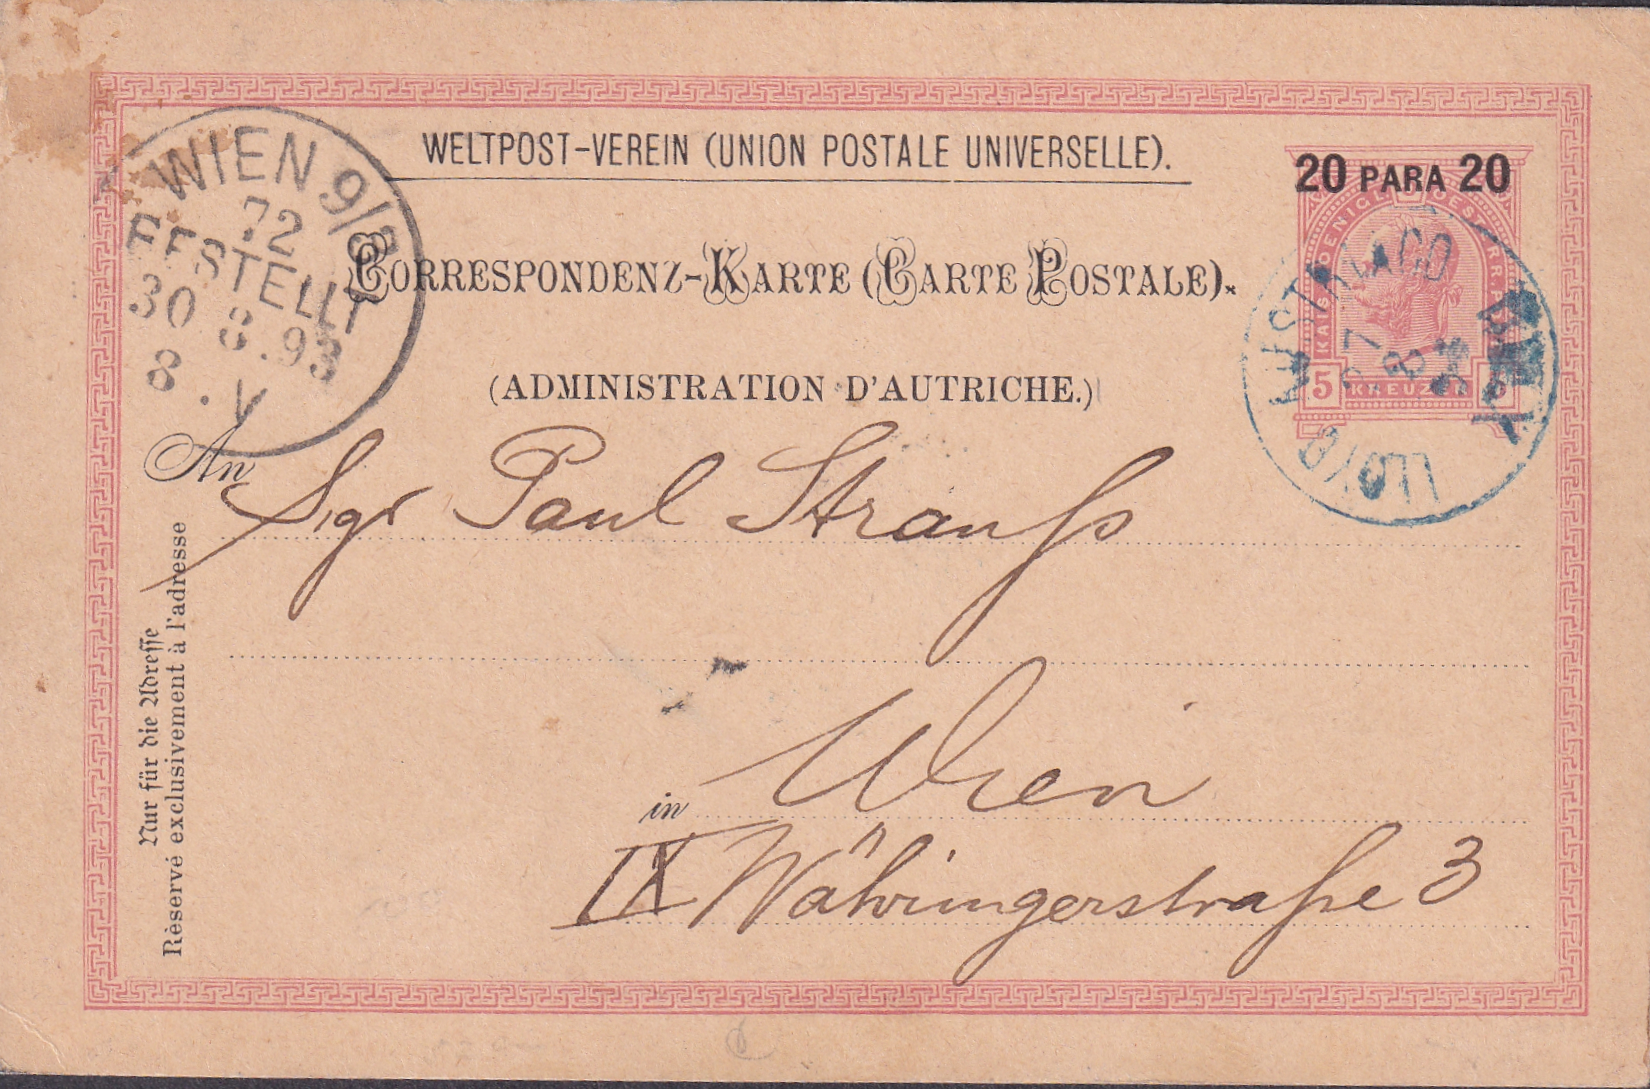 WELTPOST-VEREIN (UNION POSTALE UNIVERSELLE).
20 PARA 20
CORRESPONDENZ-KARTE (CARTE POSTALE).
(ADMINISTRATION D'AUTRICHE.)
5 KREUZER 5
WIEN 9/3
72
BESTELLT
30 8.93
8.V
LLOYD
An Sigr Paul Strauß
in Wien
IX Währingerstraße 3
Nur für die Adresse
Réservé exclusivement à l'adresse